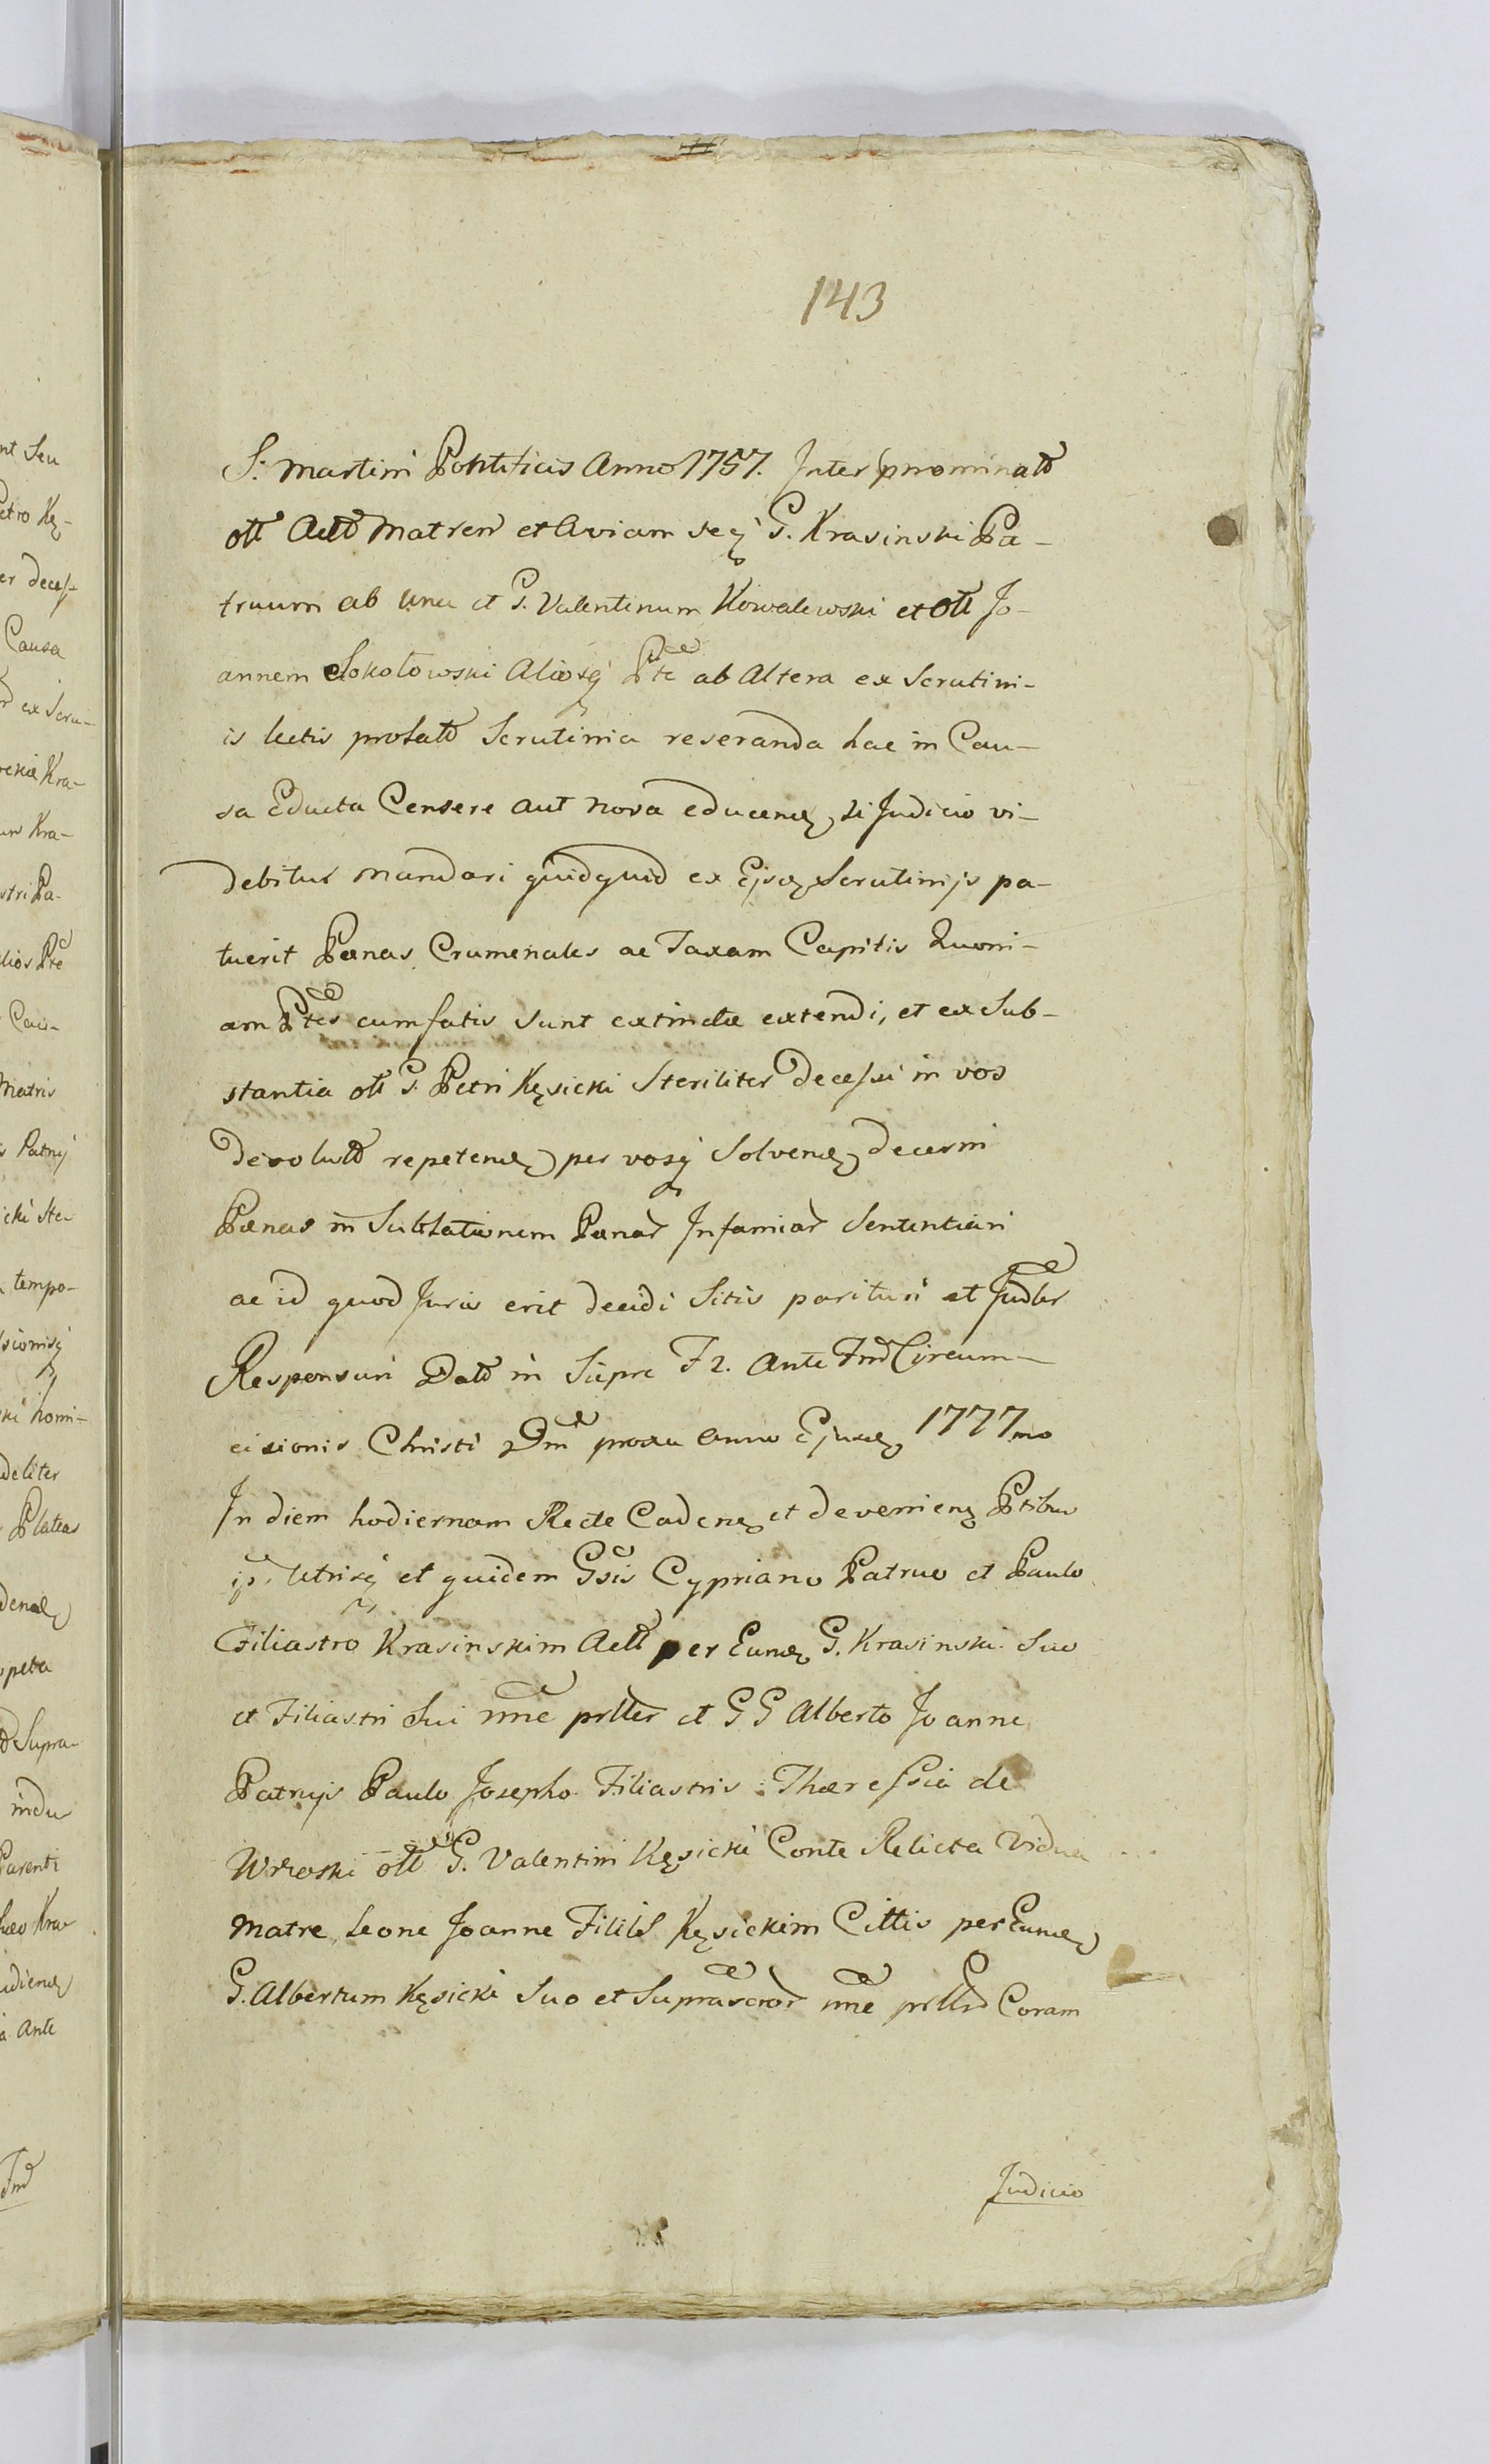 143
S. Martini Pontificis Anno 1757. Inter pnominatt
ott Actt Matrem et Aviam seq G. Krasinski Pa-
truum ab una et G. Valentinum Kowalewski et ott Jo-
annem Sokołowski Aliosq Ptte ab Altera ex Scrutini-
is lectis probatt Scrutinia reseranda hac in Cau-
sa Educta Censere aut nova educend si Judicio vi-
debitur mandari quidquid ex Ejsd Scrutinijs pa-
tuerit Pænas Crumenales ac Taxam Capitis Quoni-
am Ptes cum fatis sunt extinctæ extendi, et ex Sub-
stantia ott G. Petri Kęsicki Steriliter Decessi in vos
Devolutt repetend per vosq Solvend decerni
Pænas in Sublationem Pænar Infamiar Sententiari
ac id quod Juris erit decidi Sitis parituri et Judlr
Responsuri Datt in Sierpc F 2. Ante Fnd Circum-
cisionis Christi Dm proxa Anno Ejusd 1777mo
In diem hodiernam Recte Caden et devenien Ptibus
ip. Utrisq et quidem Gsis Cypriano Patruo et Paulo
Filiastro Krasinskim Actt per Eund G. Krasinski Suo
et Filiastri Sui nne prlter et G G Alberto Joanne
Patruis Paulo Josepho Filiastris Thæressia de
ott G. Valentini Kęsicki Conte Relicta Vidua
Matre Leone Joanne Kęsickim Cittis per Eund
G. Albertum Kęsicki Suo et Suprascror nne Coram
Judicio
nt Seu
etro Kę-
er decess-
Causa
ex Scru-
Kra-
Kra-
stri Pa-
lios Pte
Cau-
Matris
Patruj
cki Ste-
tempo-
sionisq
ki homi-
deliter
Plateas
dend
peta
Supra-
indu
Parenti
suo Kra-
udiend
a Ante
Fnd